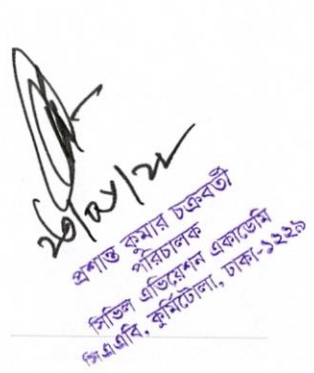 প্রশান্ত কুমার চক্রবর্তী
পরিচালক
সিভিল এভিয়েশন একাডেমি
সিএএবি, কুর্মিটোলা, ঢাকা-১২২৯